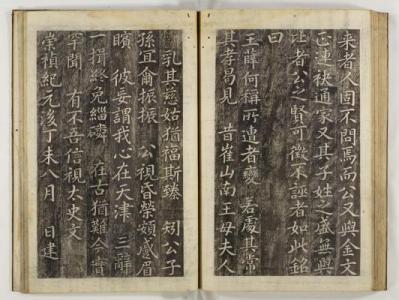 来者人固不問焉而公又與金文
正連袂通家又其子姓之盛無與
比者公之賢可徵不誣者如此銘
曰
王薛何稱所遭者變 若處其常
其孝曷見 昔崔山南王母夫人
乳其慈姑猶福斯臻 矧公子
孫宜侖振振 公視昏榮頻感眉
矉 彼妄謂我心在天津 三辭
一揖終免緇磷 在古猶難今實
罕聞 有不吾信視太史文
崇禎紀元後丁未八月 日建